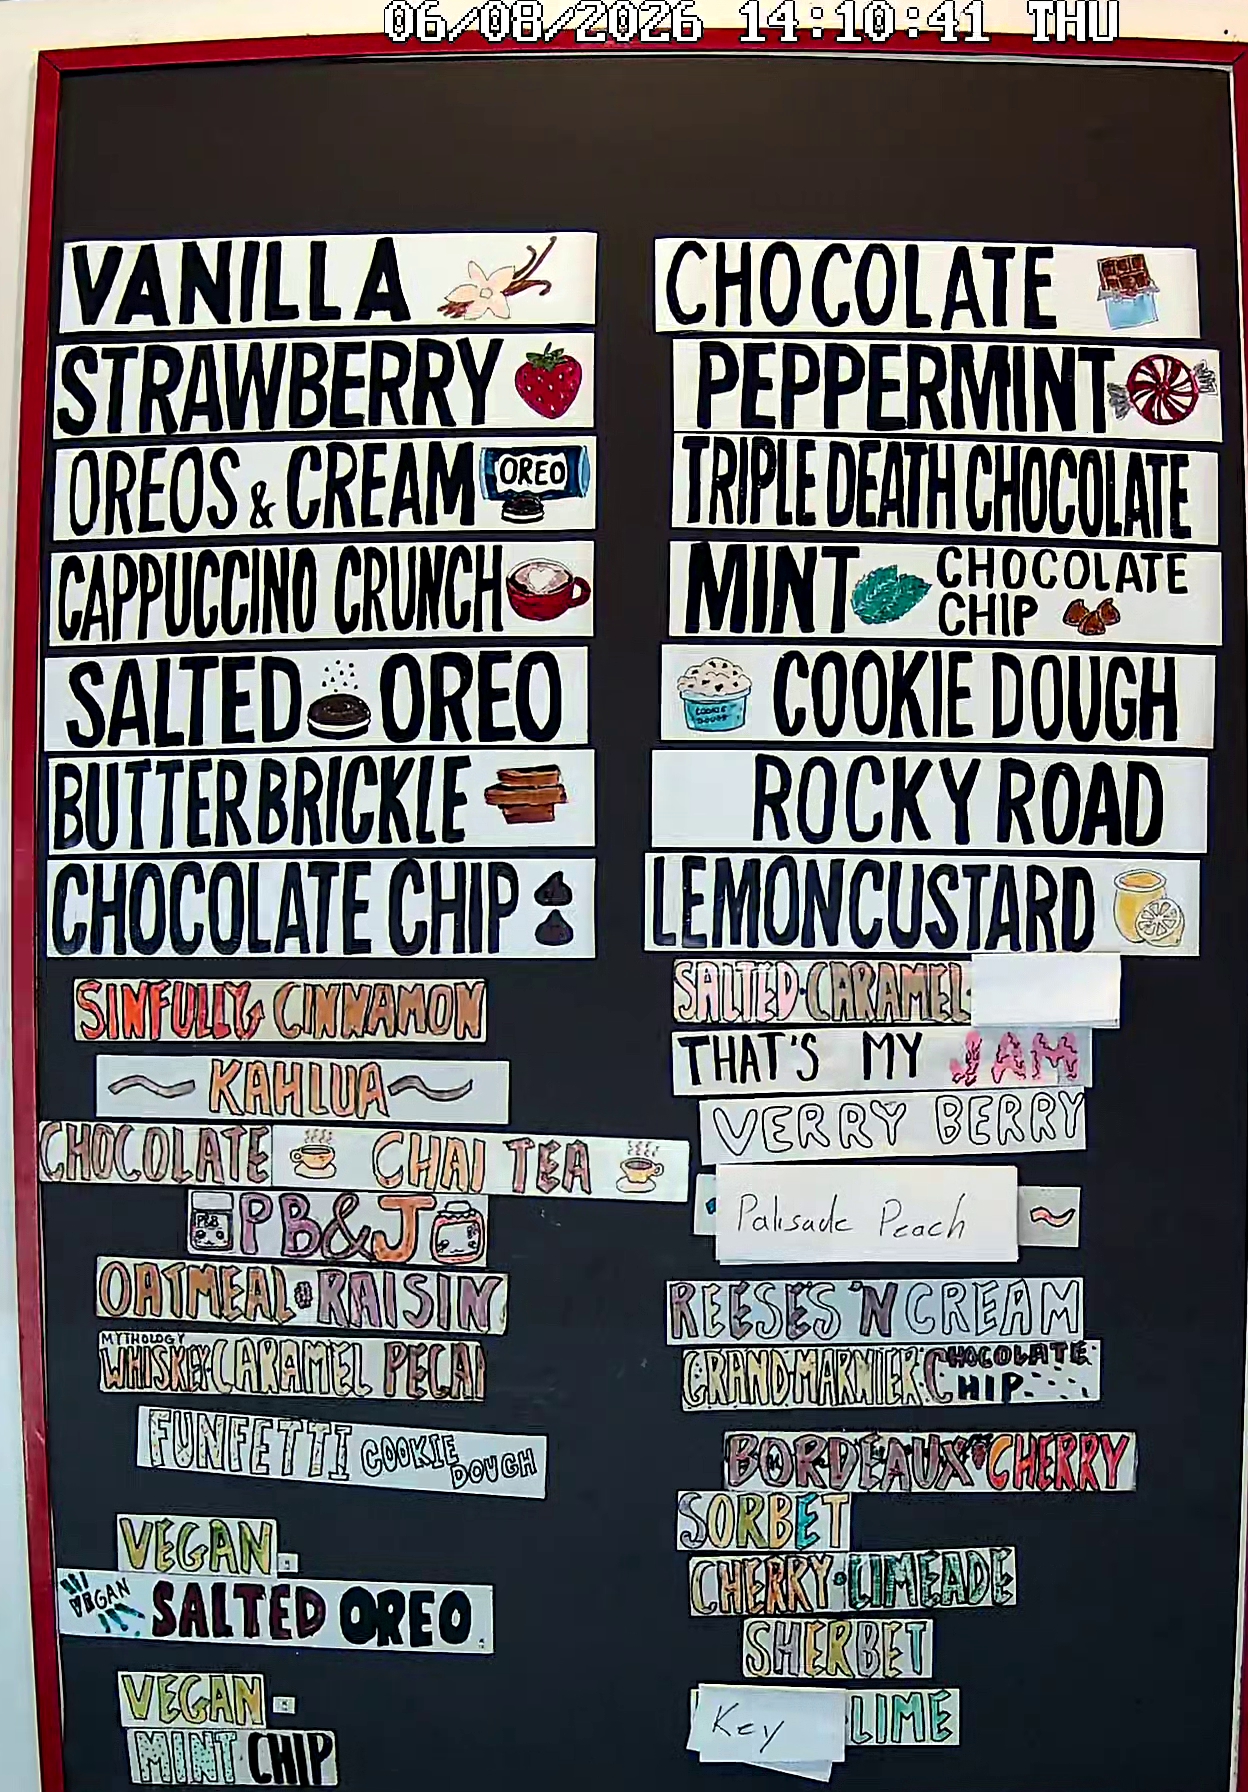 06/08/2026 14:10:41 THU
VANILLA
STRAWBERRY
OREOS & CREAM OREO
CAPPUCCINO CRUNCH
SALTED OREO
BUTTER BRICKLE
CHOCOLATE CHIP
SINFULLY CINNAMON
KAHLUA
CHOCOLATE CHAI TEA
PB&J
OATMEAL RAISIN
MYTHOLOGY
WHISKEY CARAMEL PECAN
FUNFETTI COOKIE
DOUGH
VEGAN
VEGAN SALTED OREO
VEGAN
MINT CHIP
CHOCOLATE
PEPPERMINT
TRIPLE DEATH CHOCOLATE
MINT CHOCOLATE
CHIP
COOKIE
DOUGH
COOKIE DOUGH
ROCKY ROAD
LEMON CUSTARD
SALTED CARAMEL
THAT'S MY JAM
VERRY BERRY
Palisade Peach
REESES 'N CREAM
GRAND MARNIER CHOCOLATE
CHIP
BORDEAUX CHERRY
SORBET
CHERRY LIMEADE
SHERBET
Key LIME